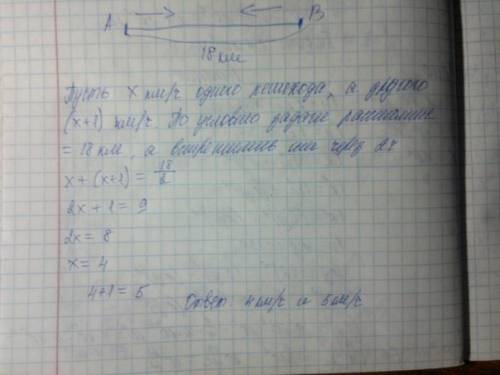 А В
18 км
Пусть х км/ч одного пешехода, а другого
(х+1) км/ч. По условию задачи расстояние
= 18 км, а встретились они через 2ч
х + (х+1) = 18/2
2х + 1 = 9
2х = 8
х = 4
4+1 = 5 Ответ 4 км/ч и 5 км/ч